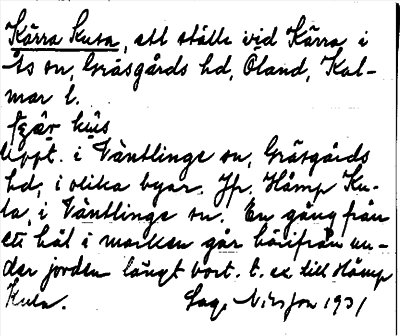 Kärra Kula, ett ställe vid Kärra i
Ås sn, Gräsgårds hd, Öland, Kal-
mar l.
uppt. i Ventlinge sn, Gräsgårds
hd, i olika byar. Jfr. Hämp Ku-
la, i Ventlinge sn. En gång från
ett hål i marken går härifrån un-
der jorden långt bort, t. ex. till Hämp
Kula. Lag. Nilsson 1931